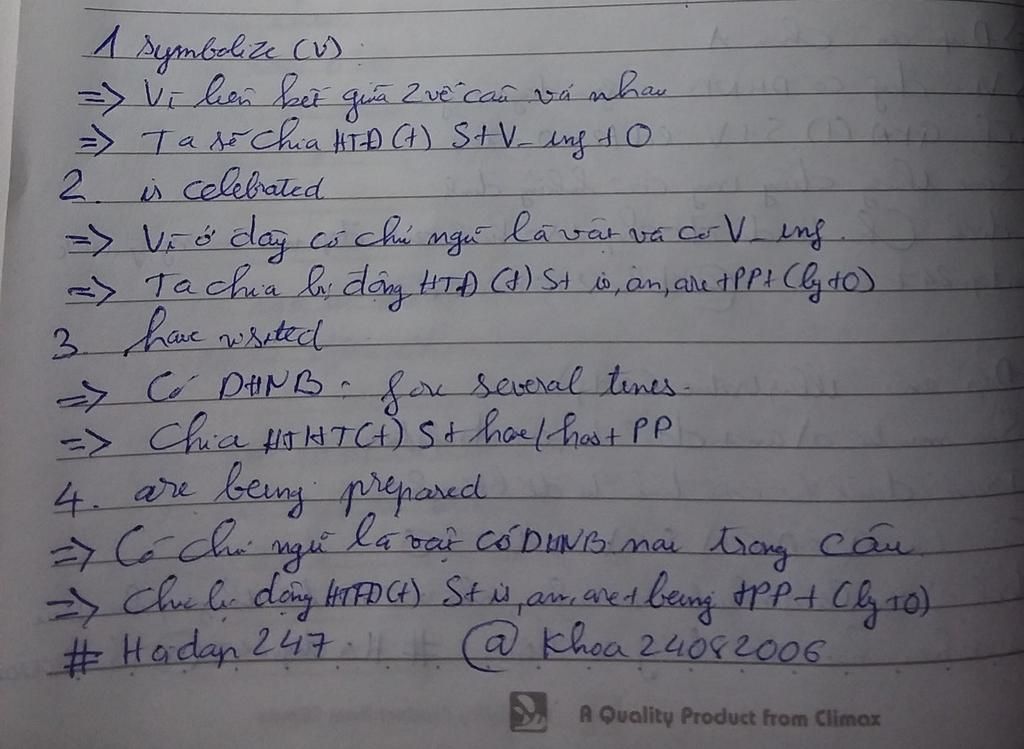 1 symbolize (V)
=> Vì liên kết giữa 2 vế câu với nhau
=> Ta sẽ chia HTĐ (+) S+V_ing + O
2. is celebrated
=> Vì ở đây có chủ ngữ là vật và có V_ing.
=> Ta chia bị động HTĐ (+) S+ is, am, are +PP+ (by+O)
3. have visited
=> Có DHNB: for several times.
=> Chia HTHT (+) S+ have/has+ PP
4. are being prepared
=> Có chủ ngữ là vật có DHNB now trong câu
=> Chia bị động HTTD (+) S+ is, am, are + being +PP + (by+O)
# Hoidap 247 @ Khoa 24082006
A Quality Product from Climax